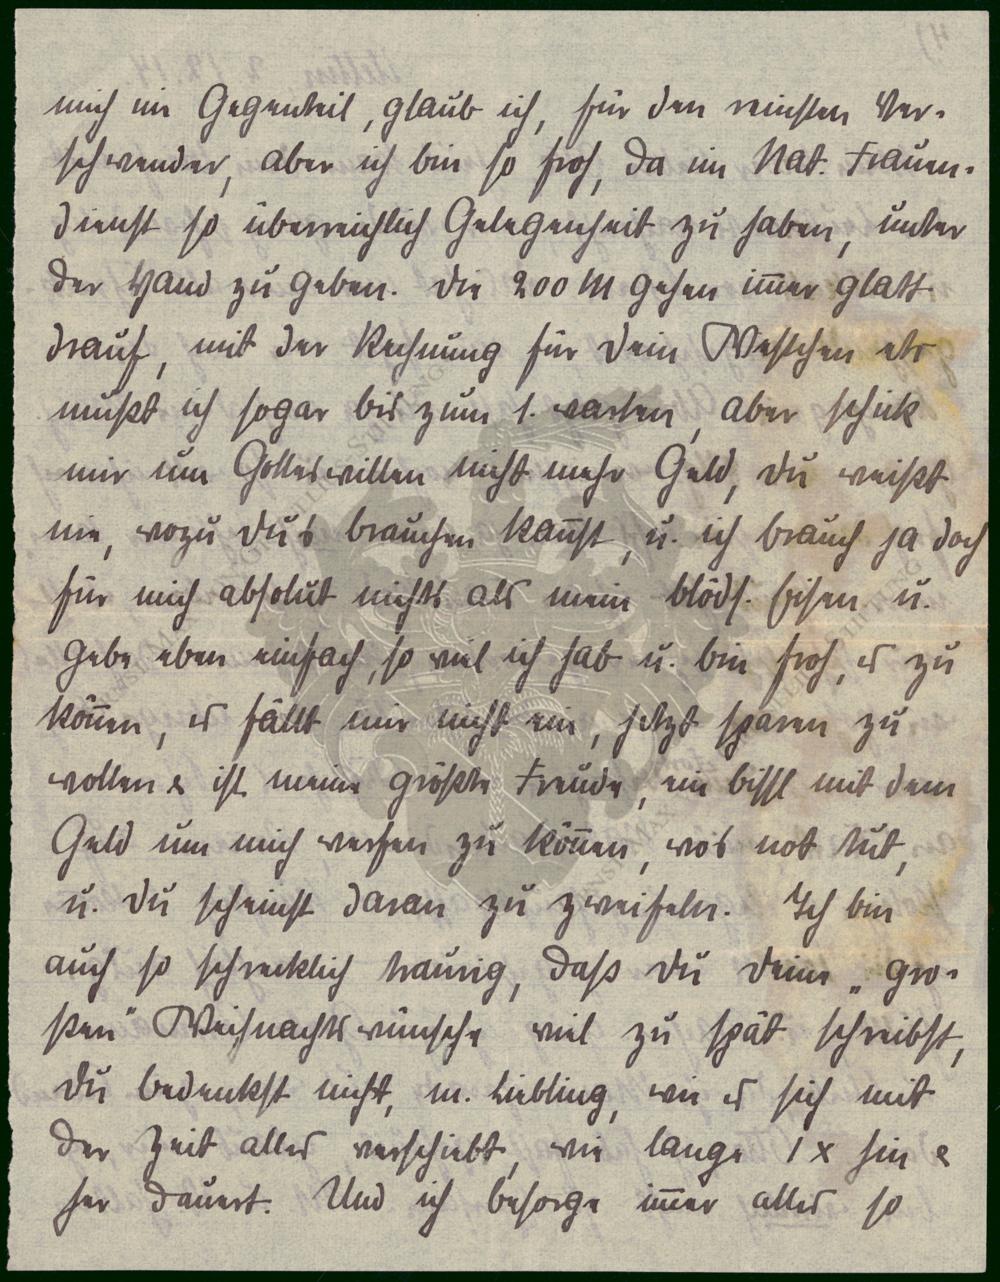 mich im Gegenteil, glaub ich, für den reinsten Ver-
schwender, aber ich bin so froh, da im Nat. Frauen-
dienst so überreichlich Gelegenheit zu haben, unter
der Hand zu geben. Die 200 M gehen im̅er glatt
drauf, mit der Rechnung für Dein Westchen etc
mußt ich sogar bis zum 1. warten, aber schick
mir um Gotteswillen nicht mehr Geld, Du weißt
nie, wozu Du's brauchen kan̅st, u. ich brauch ja doch
für mich absolut nichts als mein blöds. Essen u.
gebe eben einfach, so viel ich hab u. bin froh, es zu
kön̅en, es fällt mir nicht ein, jetzt sparen zu
wollen & ist meine größte Freude, ein bissl mit dem
Geld um mich werfen zu kön̅en, wo's not tut,
u. Du scheinst daran zu zweifeln. Ich bin
auch so schrecklich traurig, daß Du Deine „gro-
ßen" Weihnachtswünsche viel zu spät schreibst,
Du bedenkst nicht, m. Liebling, wie es sich mit
der Zeit alles verschiebt, wie lange 1 x hin &
her dauert. Und ich besorge im̅er alles so